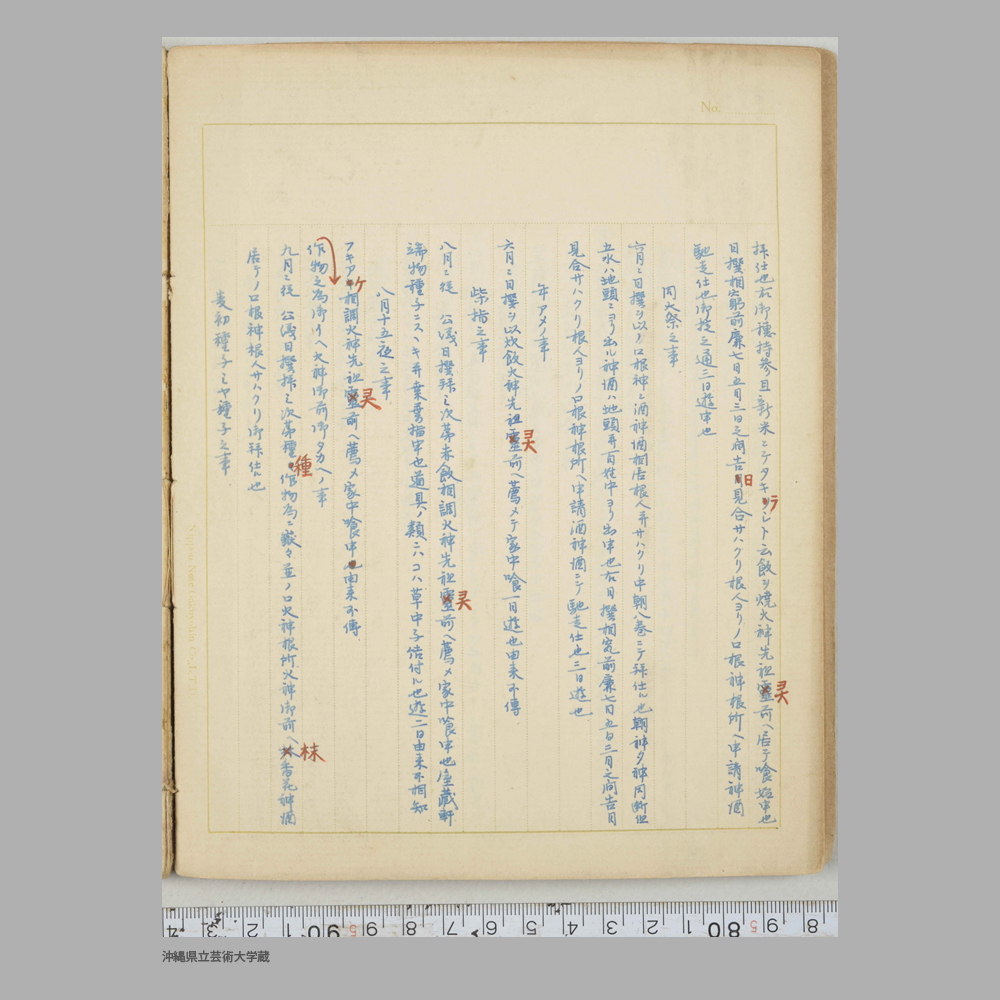 No.
拝仕也右御穂持参且新米ニテタキラシト云飯ヲ焼火神先祖霊灵前ヘ居テ喰始申也
日撰相究前廉七日五日三日之間吉日見合サハクリ根人ヨリノロ根神根所ヘ申請神酒
馳走仕也御授之通三日遊申也
同大祭之事
六月ニ日撰ヲ以ノロ根神ニ酒神酒相居根人并サハクリ中朝八巻ニテ拝仕ル也朝神夕神同断但
五水ハ地頭ヨリ出ル神酒ハ地頭并百姓中ヨリ出申也右日撰相究前廉七日五日三日之間吉日
見合サハクリ根人ヨリノロ根神根所ヘ申請酒神酒ニテ馳走仕也三日遊也
年アメノ事
六月ニ日撰ヲ以炊飯火神先祖霊灵前ヘ薦メテ家中喰一日遊也由来不傳
柴指之事
八月ニ従 公儀日撰拝ミ次第赤飯相調火神先祖霊灵前ヘ薦メ家中喰申也座蔵軒
端物種子ニスヽキ并葉指申也道具ノ類ニハコハ草中子結付ル也遊二日由来不相知
八月十五夜之事
フキアケ相調火神先祖霊灵前ヘ薦メ家中喰申也由来不傳
作物之為御イヘ火神御前御タカヘノ事
九月ニ従 公儀日撰拝ミ次第種種作物為ニ嶽々並ノロ火神根所火神御前ヘ林抹香花神酒
居テノロ根神根人サハクリ御拝仕ル也
麦初種子ミヤ種子之事
8 9 5 80 1 2 3 4 5 6 7 8 9 5 90 1 2 3 4
沖縄県立芸術大学蔵